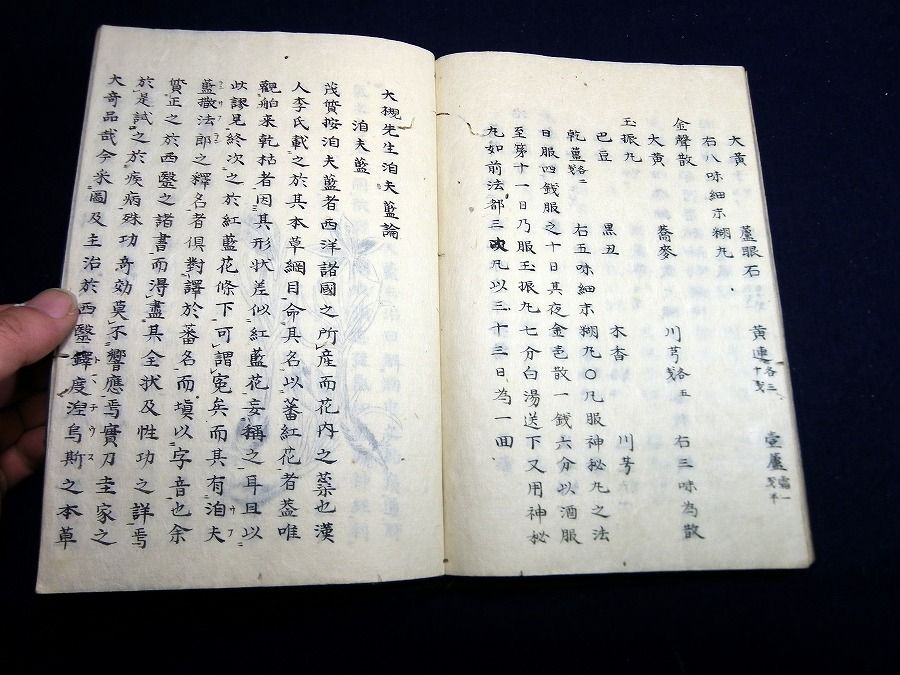 蘆眼石 黄連各三十戔 壹蘆
大黄
右八味細末糊丸
金聲散
大黄 蕎麥 川芎各五戔 右三味為散
玉振丸
巴豆 黒丑 木香 川芎
乾薑各二戔 右五味細末糊丸〇凡服神秘丸之法
日服四戔服之十日其夜金色散一戔六分以酒服
至第十一日乃服玉振丸七分白湯送下又用神秘
丸如前法都三次凡以三十三日為一回
大槻先生泊夫藍論
泊夫藍
茂質按泊夫藍者西洋諸國之所産而花内之蘂也漢
人李氏載之於其本草綱目命其名以蕃紅花者蓋唯
觀舶来乾枯者因其形状差似紅藍花妄稱之耳且以
此謬見終次之於紅藍花條下可謂寃矣而其有泊夫
藍撒法郎之釋名者倶對譯於蕃名而塡以字音也余
質正之於西毉之諸書而得盡其全状及性功之詳焉
於是試之於疾病殊功奇効莫不響應焉實刀圭家之
大奇品哉今釆圖及主治於西毉鐸度涅烏斯之本草